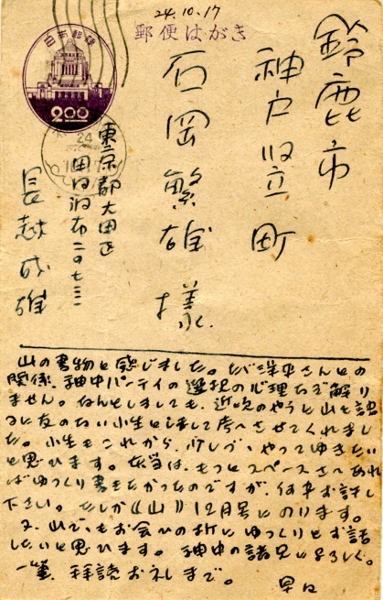 24.10.17
郵便はがき
日本郵便
2.00
鈴鹿市
神戸 立町
石岡繁雄様
東京都大田区
田園調布二ノ七三三
長越茂雄
山の書物と感じました。たゞ 平さんとの
関係、神中パーテイの選択の心理など解り
ません。なんとしましても、近頃のやうに山と
つに友のない小生としまして考へさせてくれまし
た。小生もこれから、少しづゝやってゆきたい
と思ひます。本当は、もっとスペースさへあれ
ばゆっくり書きたかつたのですが、何卒お許し
下さい。たしか《山》12月号にのります。
又、山でもお会ひの折にゆっくりとお話
したいと思ひます。神中の諸兄によろしく。
一筆、拝読お礼まで。
早々